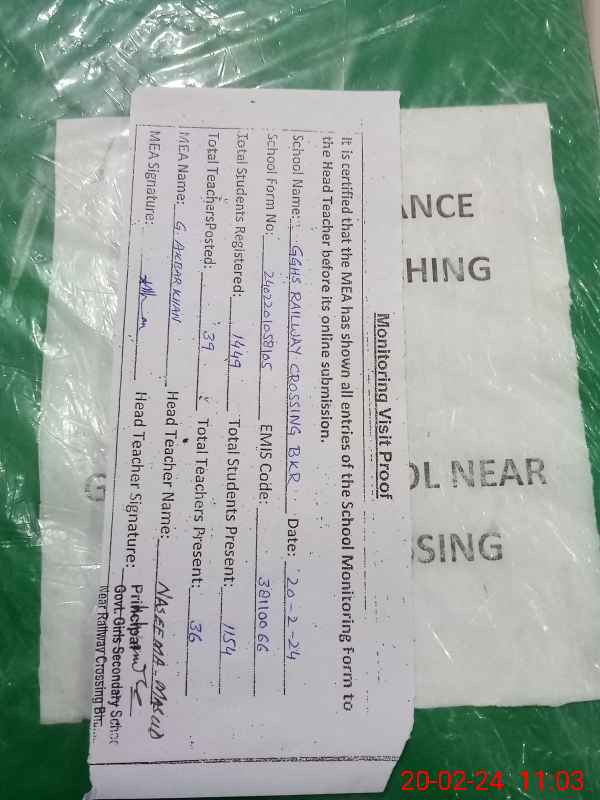 Monitoring Visit Proof
It is certified that the MEA has shown all entries of the School Monitoring Form to
the Head Teacher before its online submission.
School Name: GGHS RAILWAY CROSSING BKR Date: 20-2-24
School Form No: 2402201058105 EMIS Code: 38110066
Total Students Registered: 1449 Total Students Present: 1154
Total TeachersPosted: 39 Total Teachers Present: 36
MEA Name: G. AKBAR KHAN Head Teacher Name: NASEEMA MASUD
MEA Signature: Head Teacher Signature:
Principal
Govt. Girls Secondary School
Near Railway Crossing
ANCE
HING
OL NEAR
SSING
20-02-24 11:03